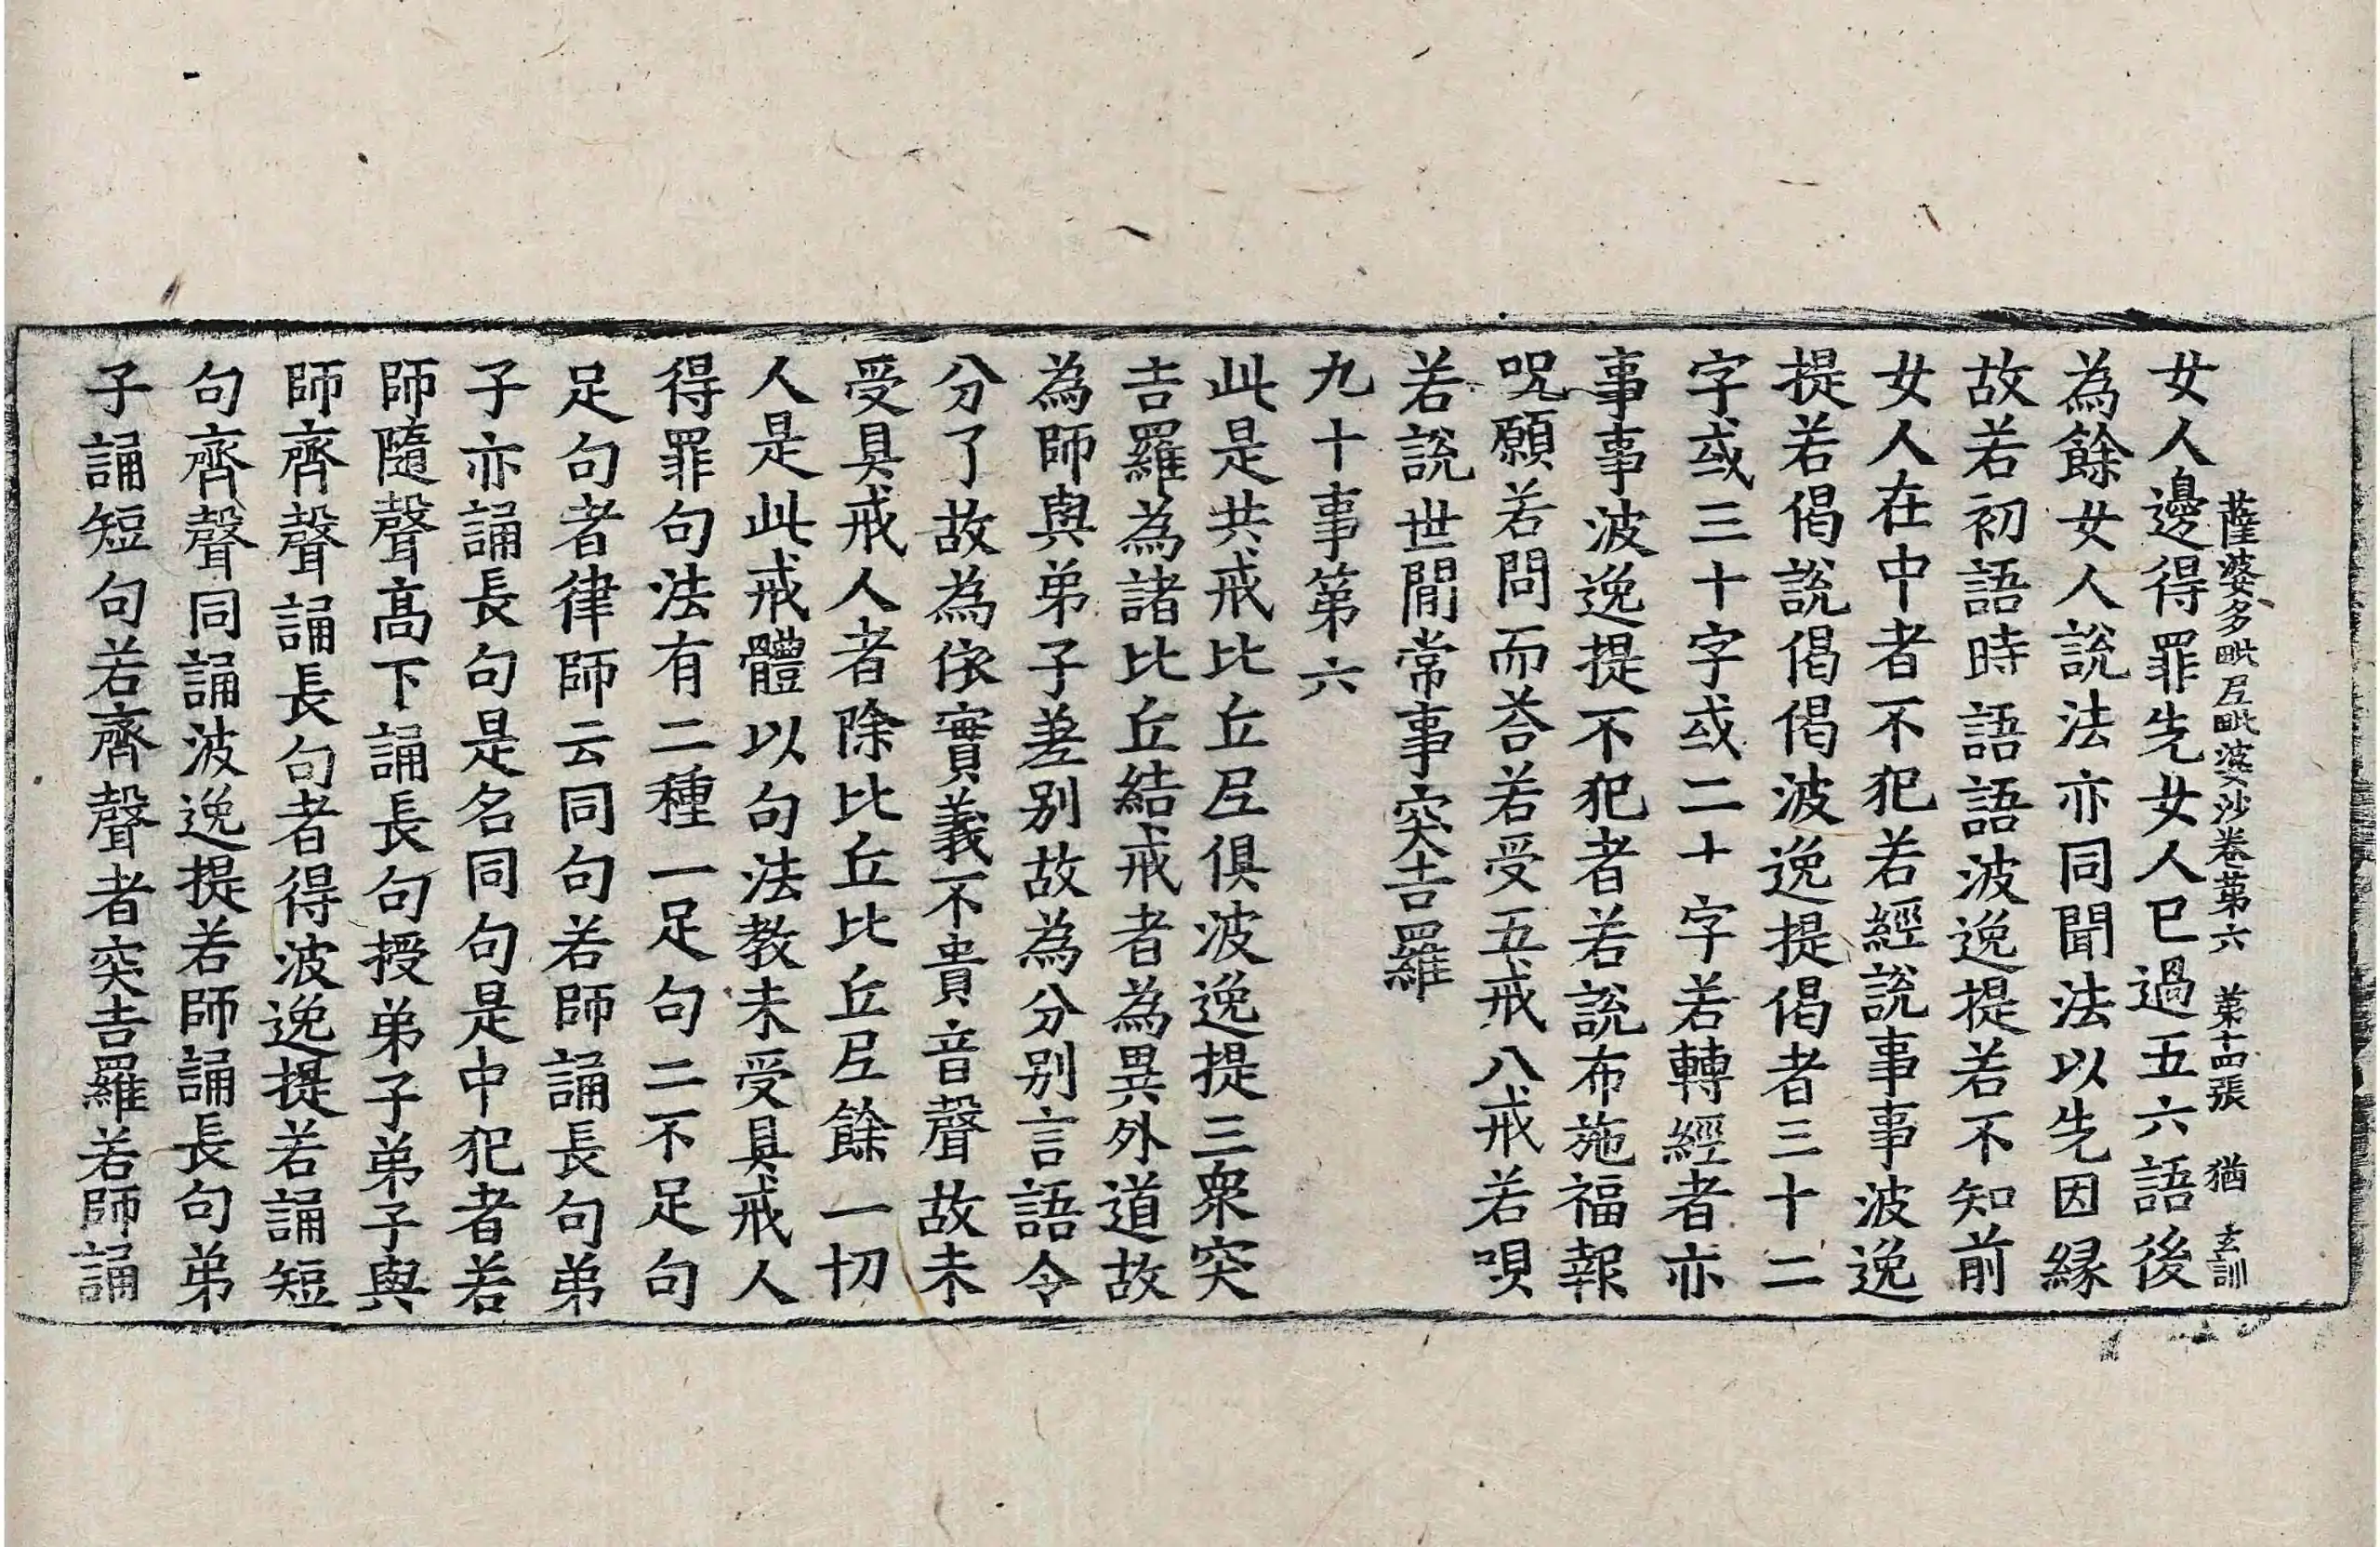 薩婆多毗尼毗婆沙卷第六 第十四張 猶 玄訓
女人邊得罪先女人已過五六語後
為餘女人說法亦同聞法以先因緣
故若初語時語語波逸提若不知前
女人在中者不犯若經說事事波逸
提若偈說偈偈波逸提偈者三十二
字或三十字或二十字若轉經者亦
事事波逸提不犯者若說布施福報
呪願若問而荅若受五戒八戒若唄
若說世閒常事突吉羅
九十事第六
此是共戒比丘尼俱波逸提三衆突
吉羅為諸比丘結戒者為異外道故
為師與弟子差別故為分別言語令
分了故為依實義不貴音聲故未
受具戒人者除比丘比丘尼餘一切
人是此戒體以句法教未受具戒人
得罪句法有二種一足句二不足句
足句者律師云同句若師誦長句弟
子亦誦長句是名同句是中犯者若
師隨聲高下誦長句授弟子弟子與
師齊聲誦長句者得波逸提若誦短
句齊聲同誦波逸提若師誦長句弟
子誦短句若齊聲者突吉羅若師誦